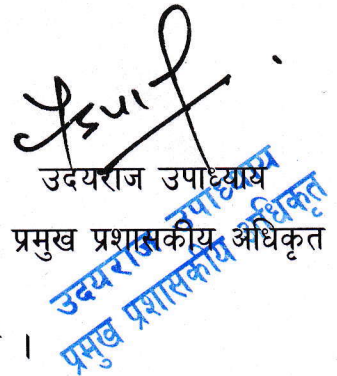 उदयराज उपाध्याय
प्रमुख प्रशासकीय अधिकृत
उदयराज उपाध्याय
प्रमुख प्रशासकीय अधिकृत
।